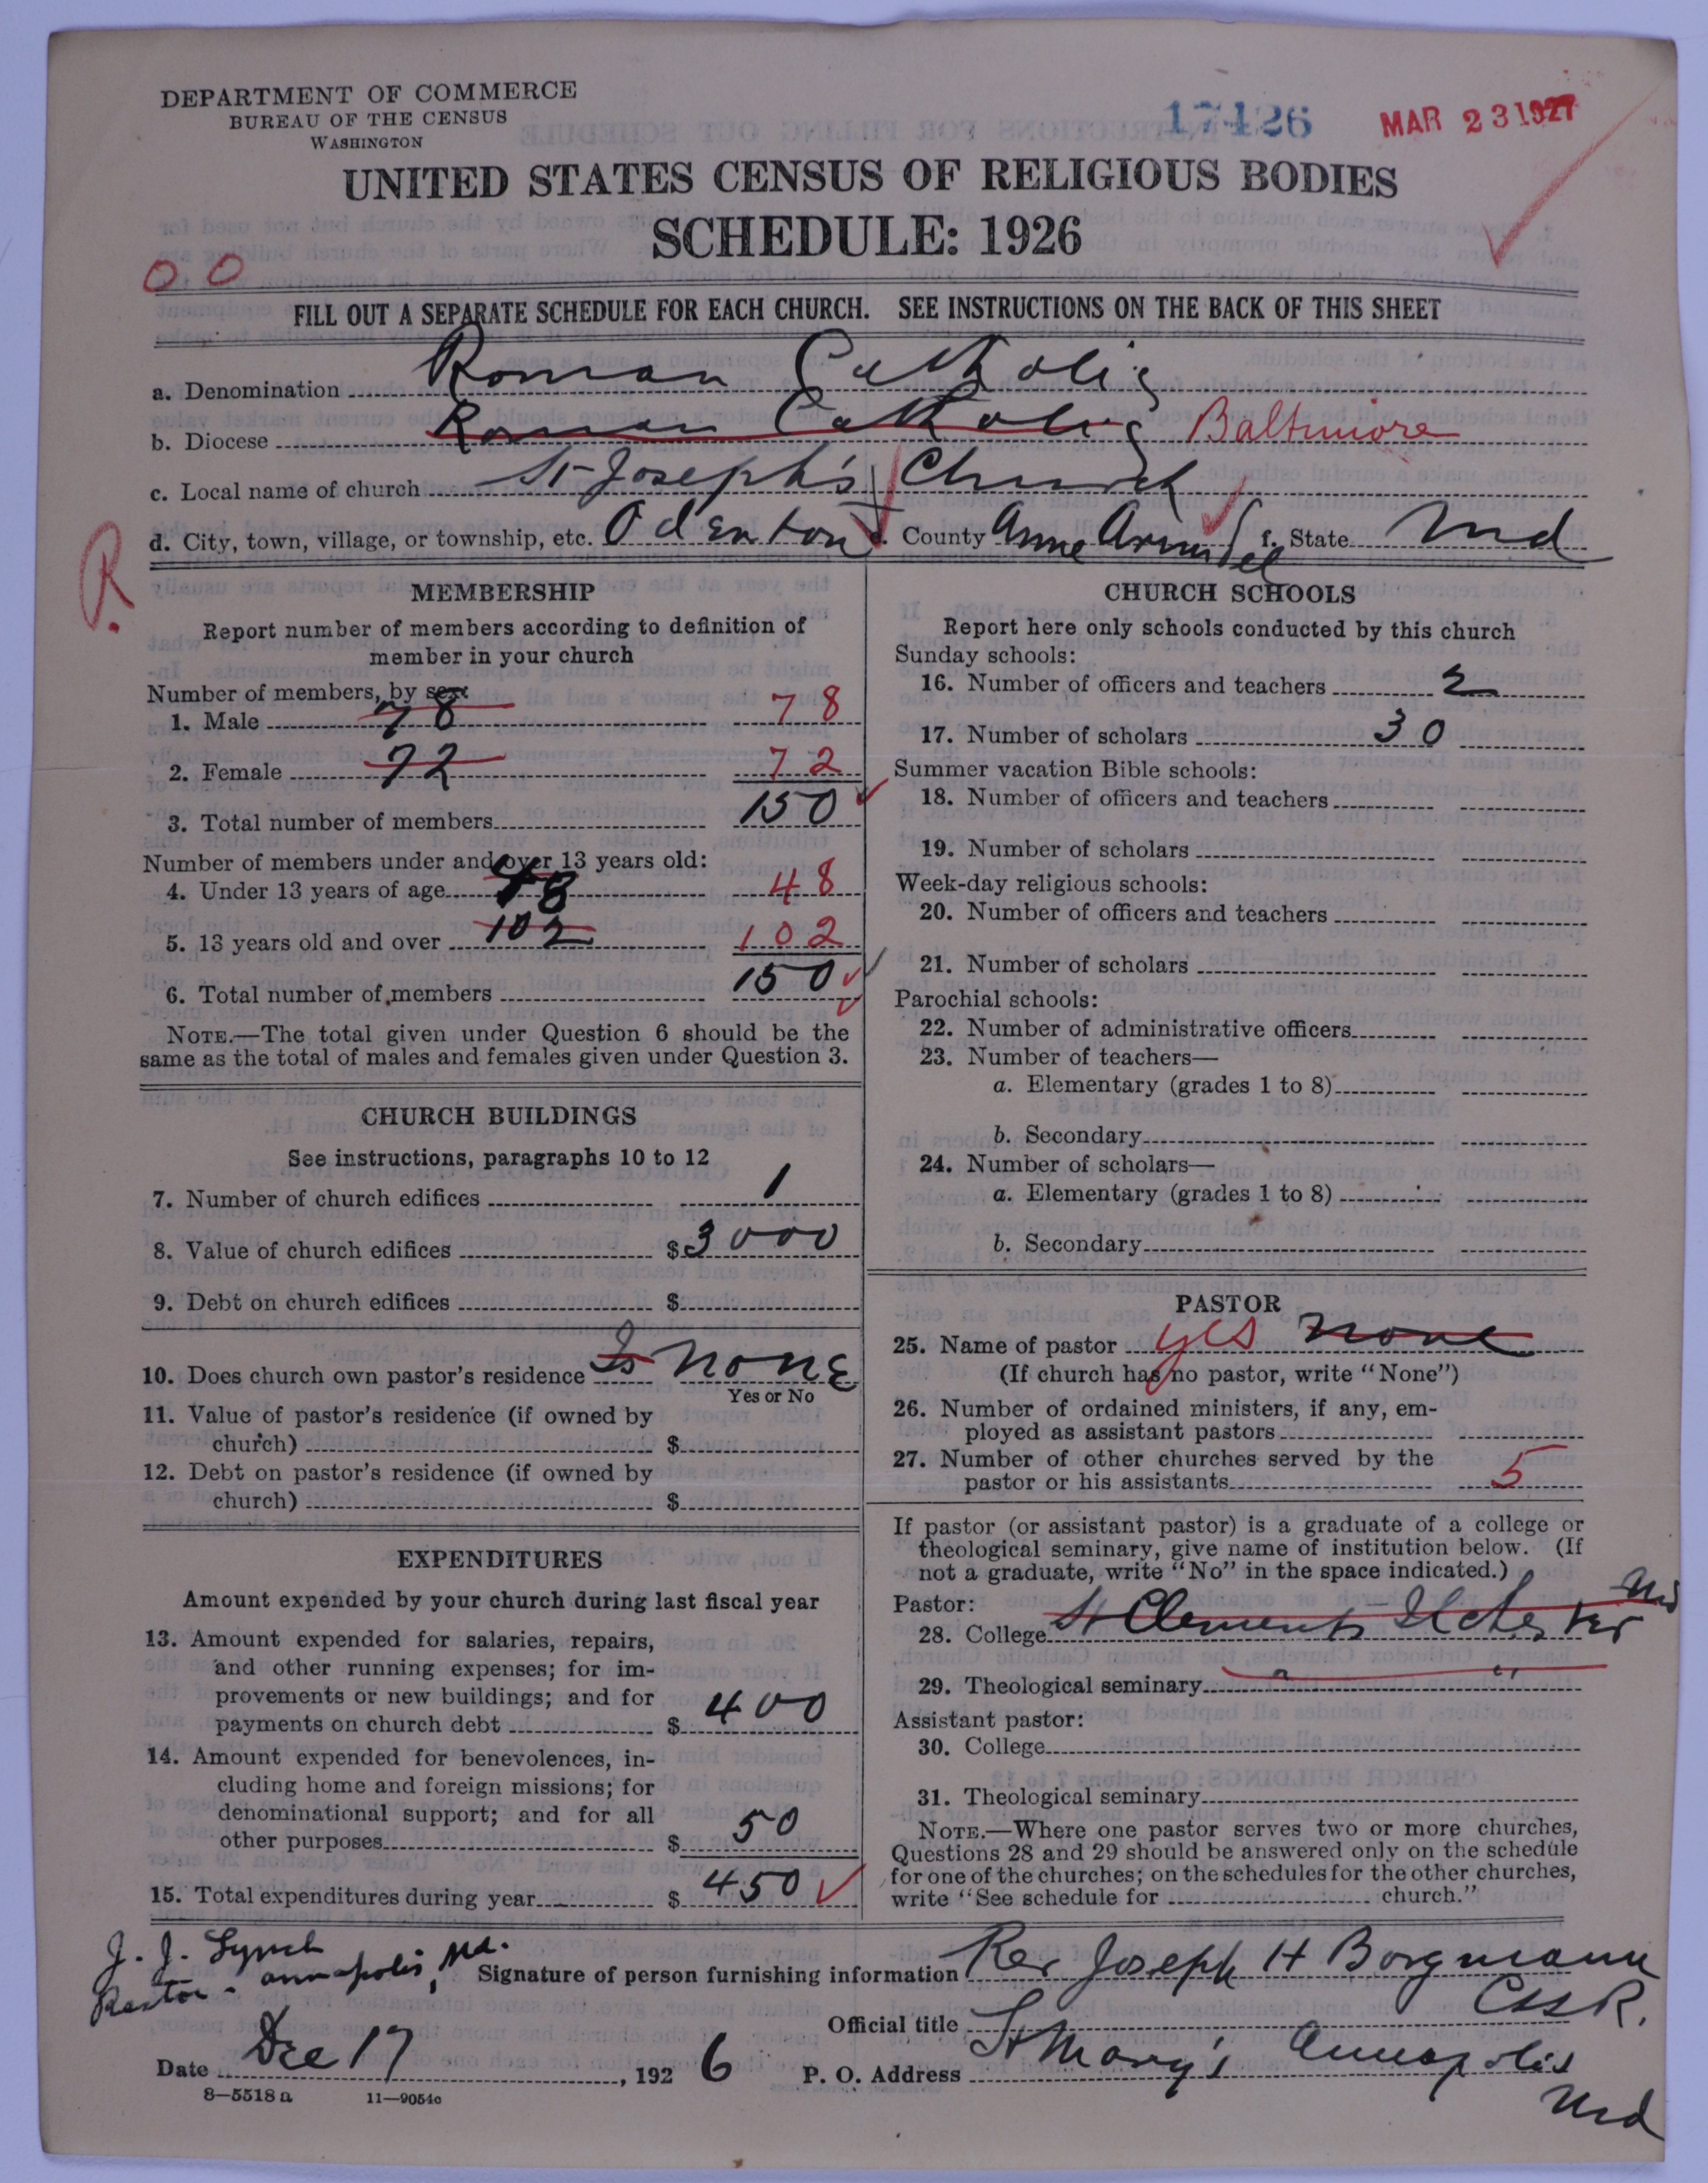 DEPARTMENT OF COMMERCE
BUREAU OF THE CENSUS
WASHINGTON
17426
MAR 23 1927
UNITED STATES CENSUS OF RELIGIOUS BODIES
SCHEDULE: 1926
00
FILL OUT A SEPARATE SCHEDULE FOR EACH CHURCH. SEE INSTRUCTIONS ON THE BACK OF THIS SHEET
a. Denomination Roman Catholic
b. Diocese Roman Catholic Baltimore
c. Local name of church St Joseph's Church
d. City, town, village, or township, etc. Odenton e. County Anne Arundel f. State Md
R.
MEMBERSHIP
Report number of members according to definition of
member in your church
Number of members, by sex:
1. Male 78 78
2. Female 72 72
3. Total number of members 150
Number of members under and over 13 years old:
4. Under 13 years of age 48 48
5. 13 years old and over 102 102
6. Total number of members 150
NOTE.—The total given under Question 6 should be the
same as the total of males and females given under Question 3.
CHURCH BUILDINGS
See instructions, paragraphs 10 to 12
7. Number of church edifices 1
8. Value of church edifices $ 3000
9. Debt on church edifices $
10. Does church own pastor's residence Is none
Yes or No
11. Value of pastor's residence (if owned by
church) $
12. Debt on pastor's residence (if owned by
church) $
EXPENDITURES
Amount expended by your church during last fiscal year
13. Amount expended for salaries, repairs,
and other running expenses; for im-
provements or new buildings; and for
payments on church debt $ 400
14. Amount expended for benevolences, in-
cluding home and foreign missions; for
denominational support; and for all
other purposes $ 50
15. Total expenditures during year $ 450
CHURCH SCHOOLS
Report here only schools conducted by this church
Sunday schools:
16. Number of officers and teachers 2
17. Number of scholars 30
Summer vacation Bible schools:
18. Number of officers and teachers
19. Number of scholars
Week-day religious schools:
20. Number of officers and teachers
21. Number of scholars
Parochial schools:
22. Number of administrative officers
23. Number of teachers—
a. Elementary (grades 1 to 8)
b. Secondary
24. Number of scholars—
a. Elementary (grades 1 to 8)
b. Secondary
PASTOR
25. Name of pastor yes none
(If church has no pastor, write "None")
26. Number of ordained ministers, if any, em-
ployed as assistant pastors
27. Number of other churches served by the
pastor or his assistants 5
If pastor (or assistant pastor) is a graduate of a college or
theological seminary, give name of institution below. (If
not a graduate, write "No" in the space indicated.)
Pastor:
28. College St Clements Ilchester Md
29. Theological seminary " "
Assistant pastor:
30. College
31. Theological seminary
NOTE.—Where one pastor serves two or more churches,
Questions 28 and 29 should be answered only on the schedule
for one of the churches; on the schedules for the other churches,
write "See schedule for church."
J. J. Lynch
Rector - Annapolis, Md.
Signature of person furnishing information Rev Joseph H Borgmann
CSSR.
Official title
Date Dec 17, 1926 P. O. Address St Mary's Annapolis
Md
8—5518 a 11—9054c